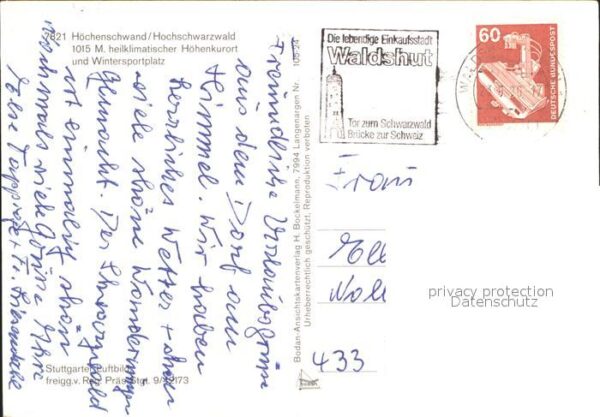 7821 Höchenschwand/Hochschwarzwald
1015 M. heilklimatischer Höhenkurort
und Wintersportplatz
Freundliche Urlaubsgrüße
aus dem Dorf am
Himmel. Wir haben
herrliches Wetter +
viele schöne Wanderungen
gemacht. Der Schwarzwald
ist einmalig schön
viele Grüße Ihre
Stuttgarter Luftbild
freigg.v. Reg. Präs. Stgt. 9/
Bodan-Ansichtskartenverlag H. Bockelmann, 7994 Langenargen Nr. 105-24
Urheberrechtlich geschützt. Reproduktion verboten.
Die lebendige Einkaufsstadt
Waldshut
Tor zum Schwarzwald
Brücke zur Schweiz
60
DEUTSCHE BUNDESPOST
Frau
433
privacy protection
Datenschutz